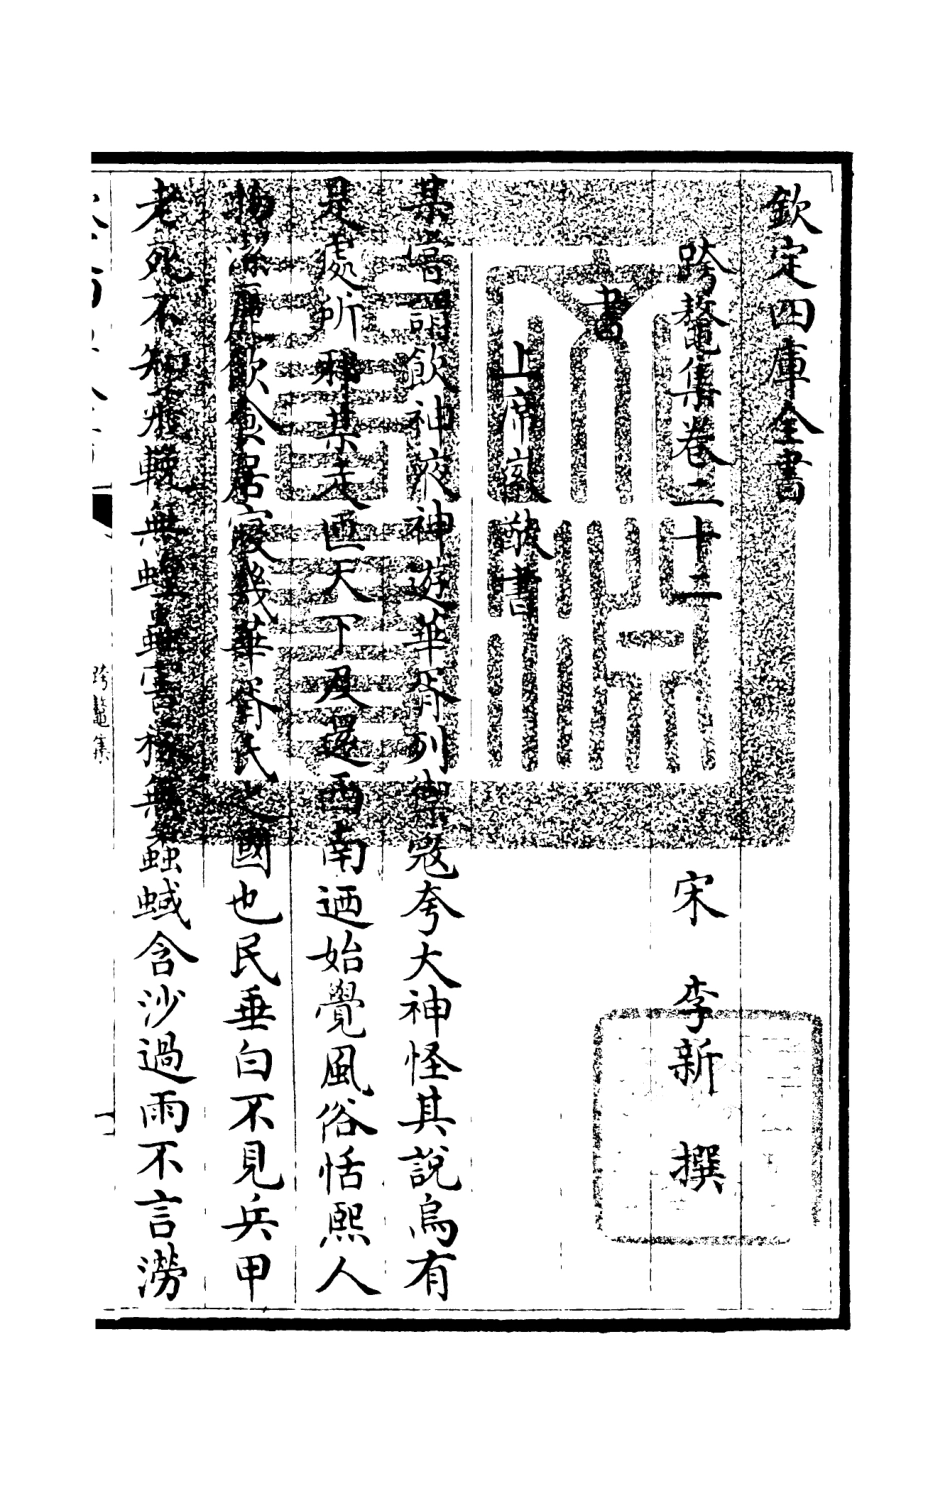 欽定四庫全書
跨鼇集卷二十二
宋 李新 撰
書
上席徽猷書
某嘗謂飲神瀵神遊華胥列禦冦夸大神怪其說烏有
是處所邪某走匝天下及還西南迺始覺風俗恬熙人
物 庶飲食居寢幾華胥氏之國也民垂白不見兵甲
老死不知飛輓無蝗蟲害稼無蝨蜮含沙過雨不言澇
跨鼇集